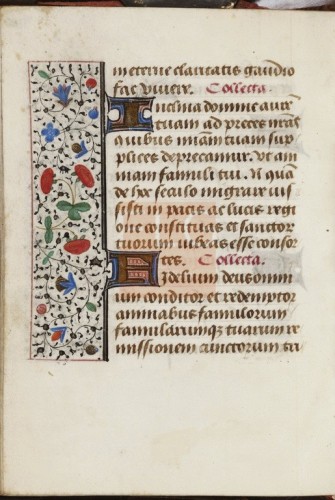 in eterne claritatis gaudio
fac vivere. Collecta.
Inclina domine aurē
tuam ad preces nr̄as
quibus miam̄ tuam sup
plices deprecamur. ut am
mam famuli tui. N. quā
de hoc seculo migrare ius
sisti in pacis ac lucis regi
one constituas et sanctor
tuorum iubeas esse consor
tes. Collecta.
Fidelium deus omni
um conditor et redemptor
animabus famulorum
famularumqꝫ tuarum re
missionem cunctorum tri